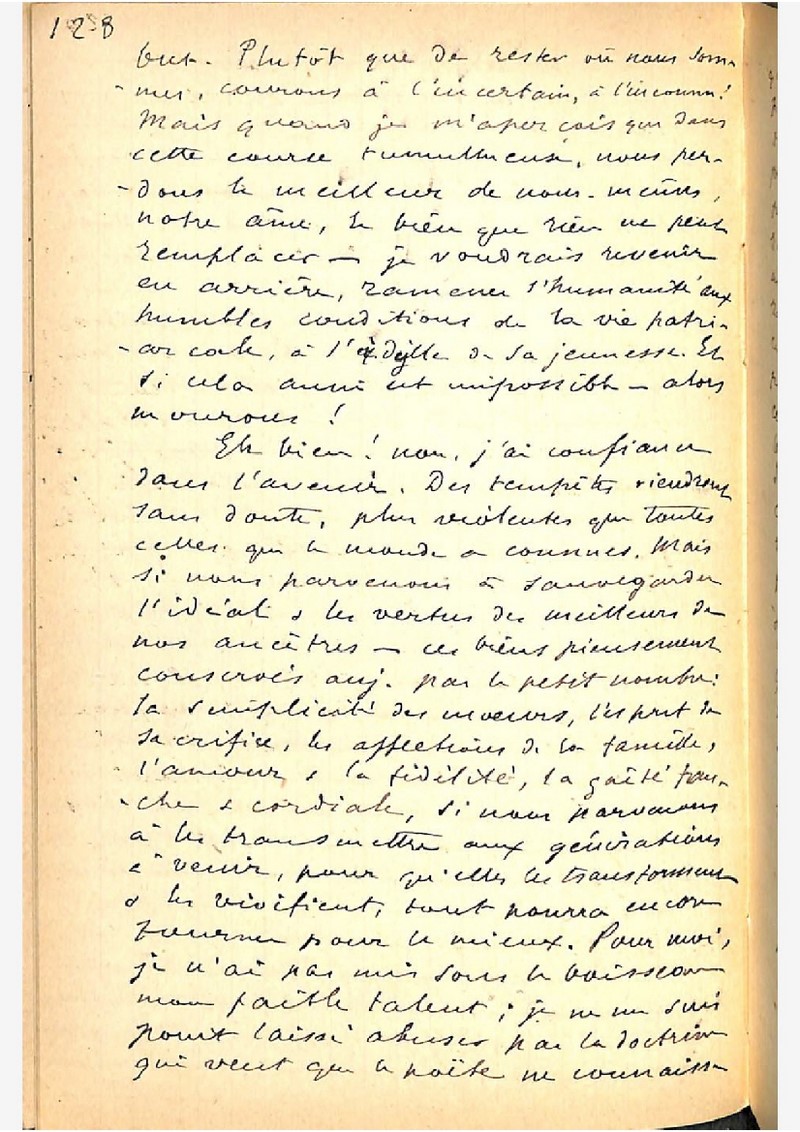 128
but. Plutôt que de rester où nous som-
-mes, courons à l'incertain, à l'inconnu!
Mais quand je m'aperçois que dans
cette course tumultueuse, nous per-
-dons le meilleur de nous-mêmes,
notre âme, le bien que rien ne peut
remplacer — je voudrais revenir
en arrière, ramener l'humanité aux
humbles conditions de la vie patri-
-arcale, à l'idylle de sa jeunesse. Et
si cela aussi est impossible — alors
mourons!
Eh bien! non, j'ai confiance
dans l'avenir. Des tempêtes viendront
sans doute, plus violentes que toutes
celles que le monde a connues. Mais
si nous parvenons à sauvegarder
l'idéal & les vertus des meilleurs de
nos ancêtres — ces biens pieusement
conservés auj. par le petit nombre:
la simplicité des moeurs, l'esprit de
sacrifice, les affections de la famille,
l'amour & la fidélité, la gaîté fran-
-che & cordiale, si nous parvenons
à les transmettre aux générations
à venir, pour qu'elles les transforment
& les vivifient, tout pourra encore
tourner pour le mieux. Pour moi,
je n'ai pas mis sous le boisseau
mon faible talent; je ne me suis
point laissé abuser par la doctrine
qui veut que le poëte ne connaisse